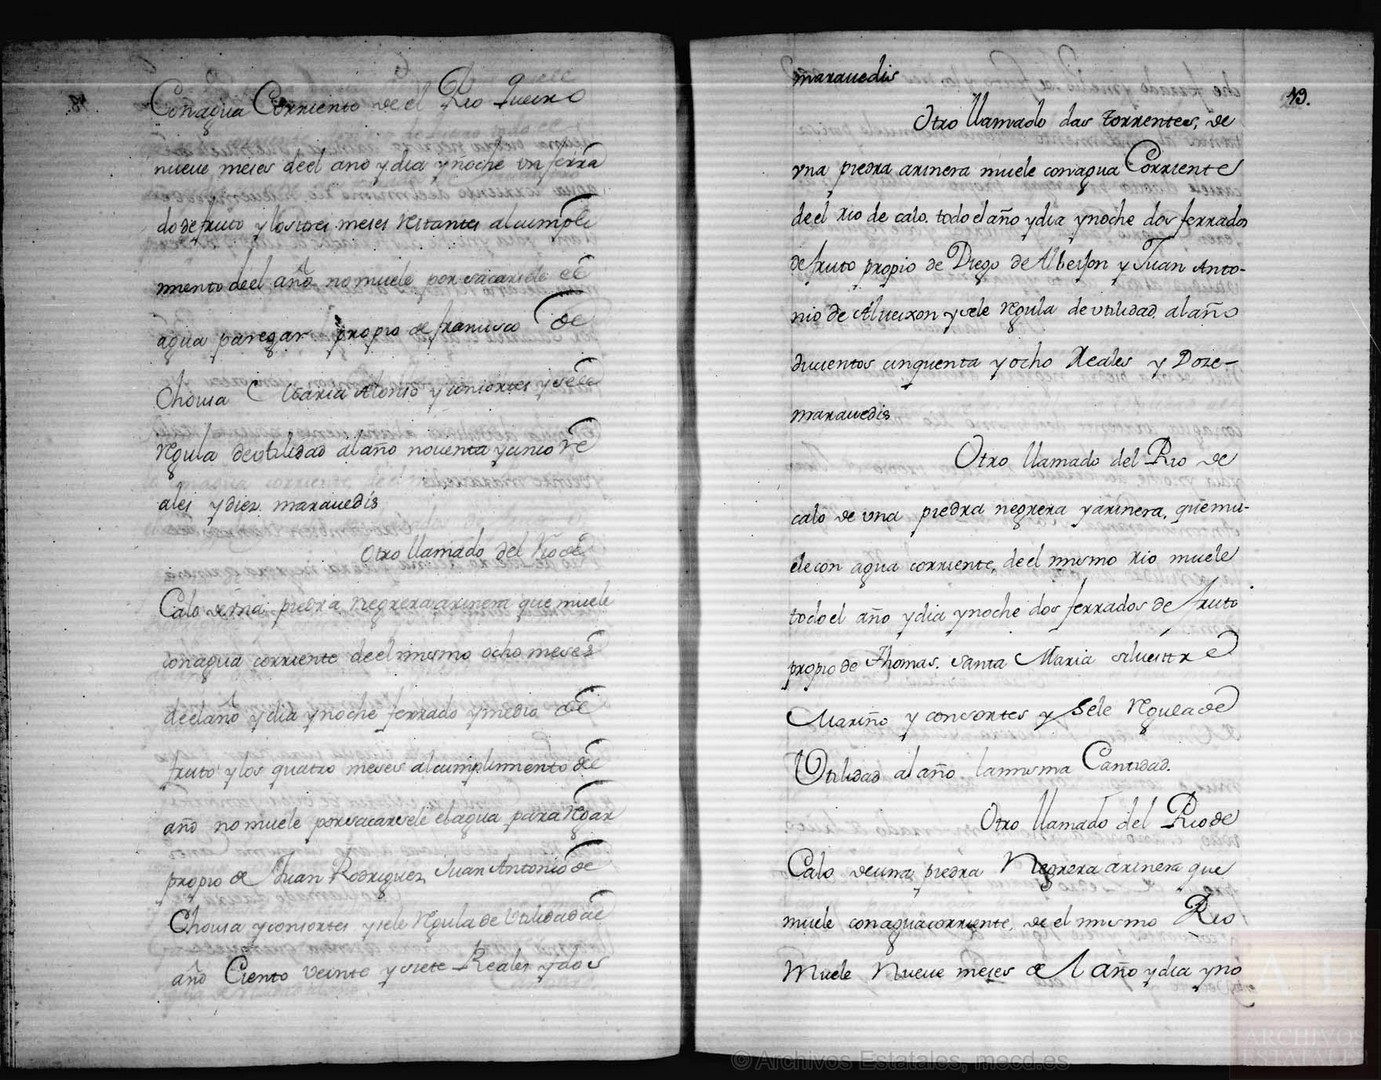 que muele
Con agua Corriente de el Rio
nueve meses de el año y dia y noche un ferra
do de fruto y los tres meses restantes al cumpli
miento de el año no muele por sacarsele el
agua pa regar propio de francisco de
Chousa Maria Alonso y consortes y sele
regula de utilidad al año noventa y cinco re
ales y diez maravedis
Otro llamado del Rio de
Calo de una piedra negrera arinera que muele
con agua corriente de el mismo ocho meses
de el año y dia y noche ferrado y medio de
fruto y los quatro meses al cumplimiento de
año no muele por sacarsele el agua para regar
propio de Juan Rodriguez Juan Antonio de
Chousa y consortes y sele regula de Utilidad al
año Ciento veinte y siete Reales y dos
maravedis
19.
Otro llamado das torrentes, de
una piedra arinera muele con agua Corriente
de el rio de calo. todo el año y dia y noche dos ferrados
de fruto propio de Diego de y Juan Anto-
nio de y sele regula de utilidad al año
ducientos cinquenta y ocho Reales y Doze-
maravedis
Otro llamado del Rio de
calo de una piedra negrera y arinera, que mu-
ele con agua corriente, de el mismo rio muele
todo el año y dia y noche dos ferrados de fruto
propio de Thomas. santa Maria silvestre
Mariño y consortes y sele regula de
Utilidad al año la misma Cantidad.
Otro llamado del Rio de
Calo de una piedra Negrera arinera que
muele con agua corriente, de el mismo Rio
Muele Nueve meses de l año y dia y no
© Archivos Estatales, mecd.es
ARCHIVOS
ESTATALES